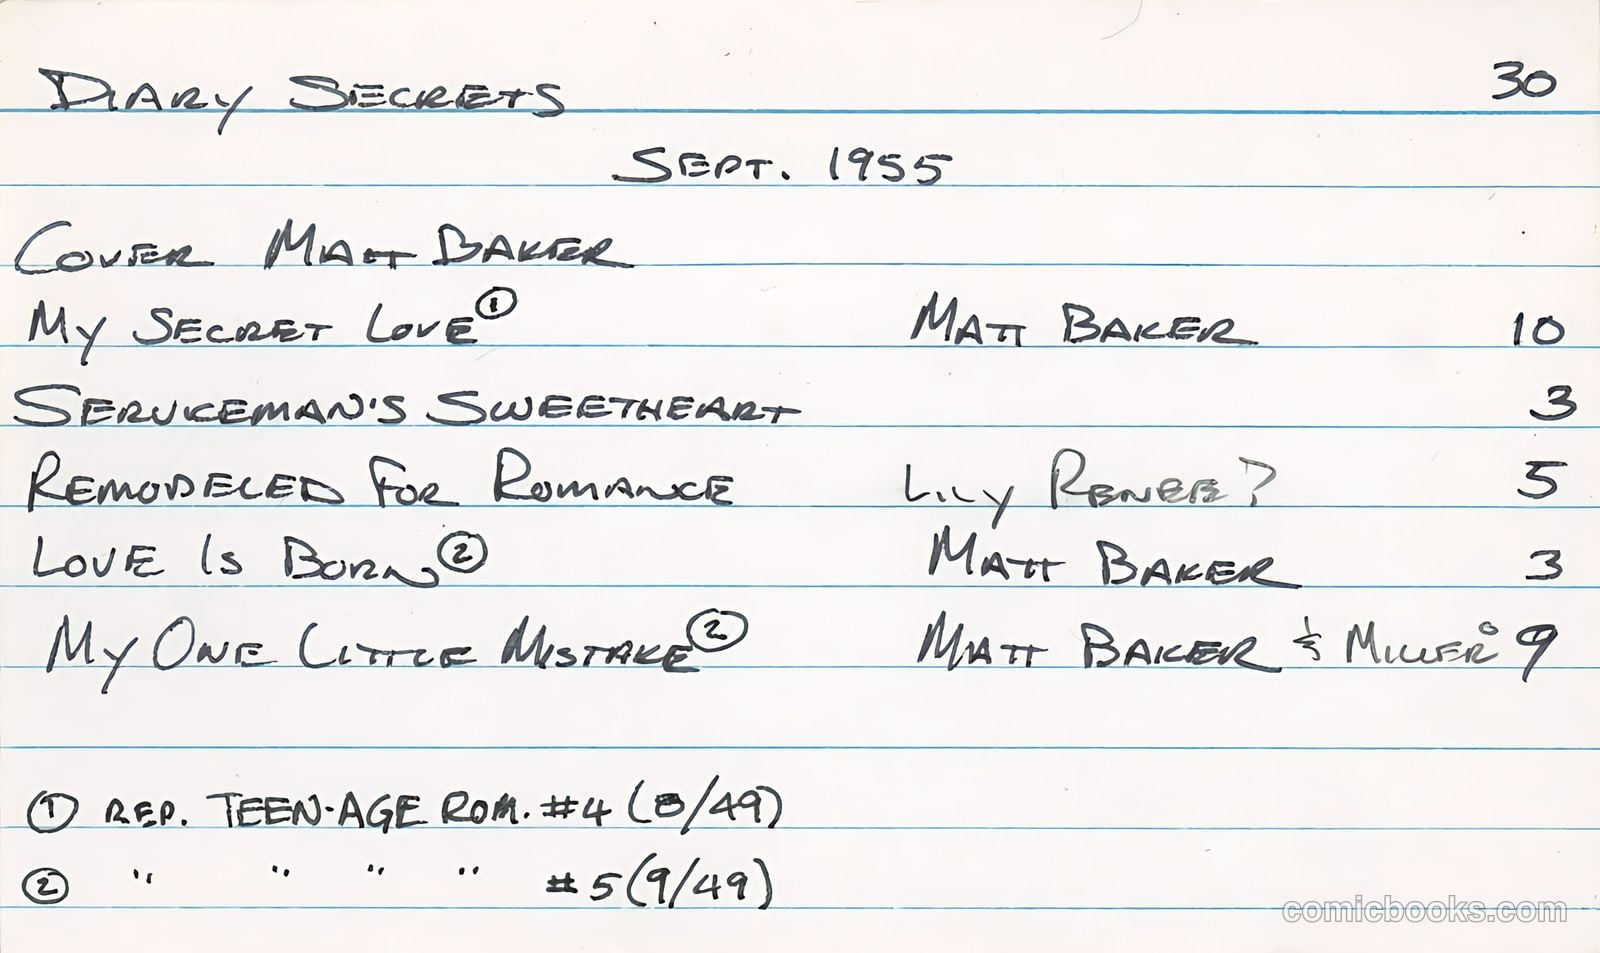 DIARY SECRETS 30
SEPT. 1955
COVER MATT BAKER
MY SECRET LOVE ① MATT BAKER 10
SERVICEMAN'S SWEETHEART 3
REMODELED FOR ROMANCE LILY RENEE? 5
LOVE IS BORN ② MATT BAKER 3
MY ONE LITTLE MISTAKE ② MATT BAKER & MILLER? 9
① REP. TEEN-AGE ROM. #4 (8/49)
② " " " " #5 (9/49)
comicbooks.com